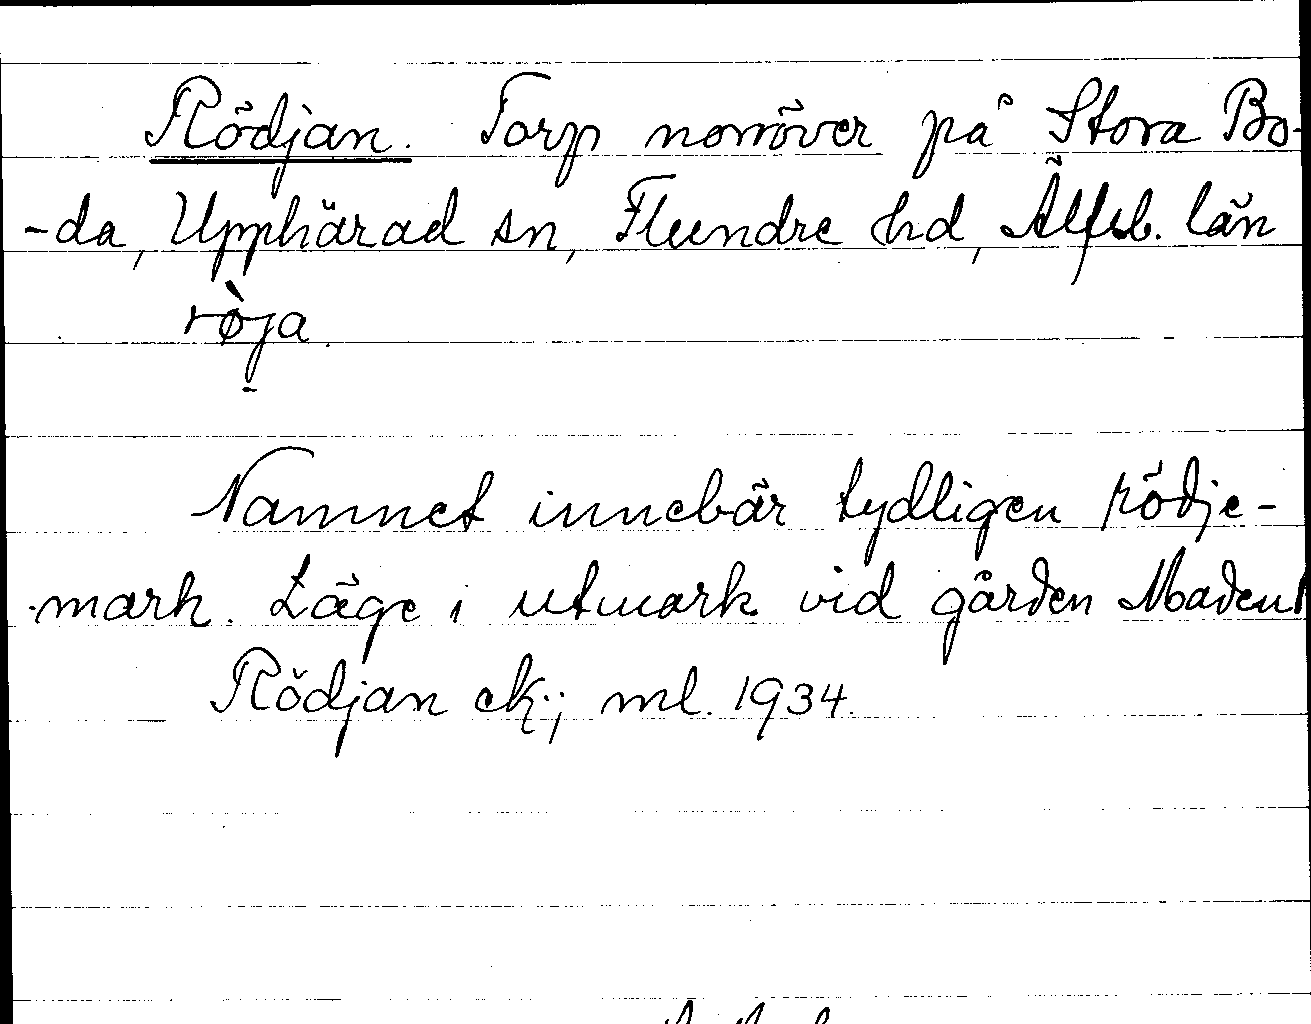 Rödjan. Torp norröver på Stora Bo-
-da, Upphärad sn, Flundre hd, Älfsb. län
rø̀ja.
Namnet innebär tydligen rödje-
mark. Läge i utmark vid gården Maden
Rödjan ek.; ml. 1934.